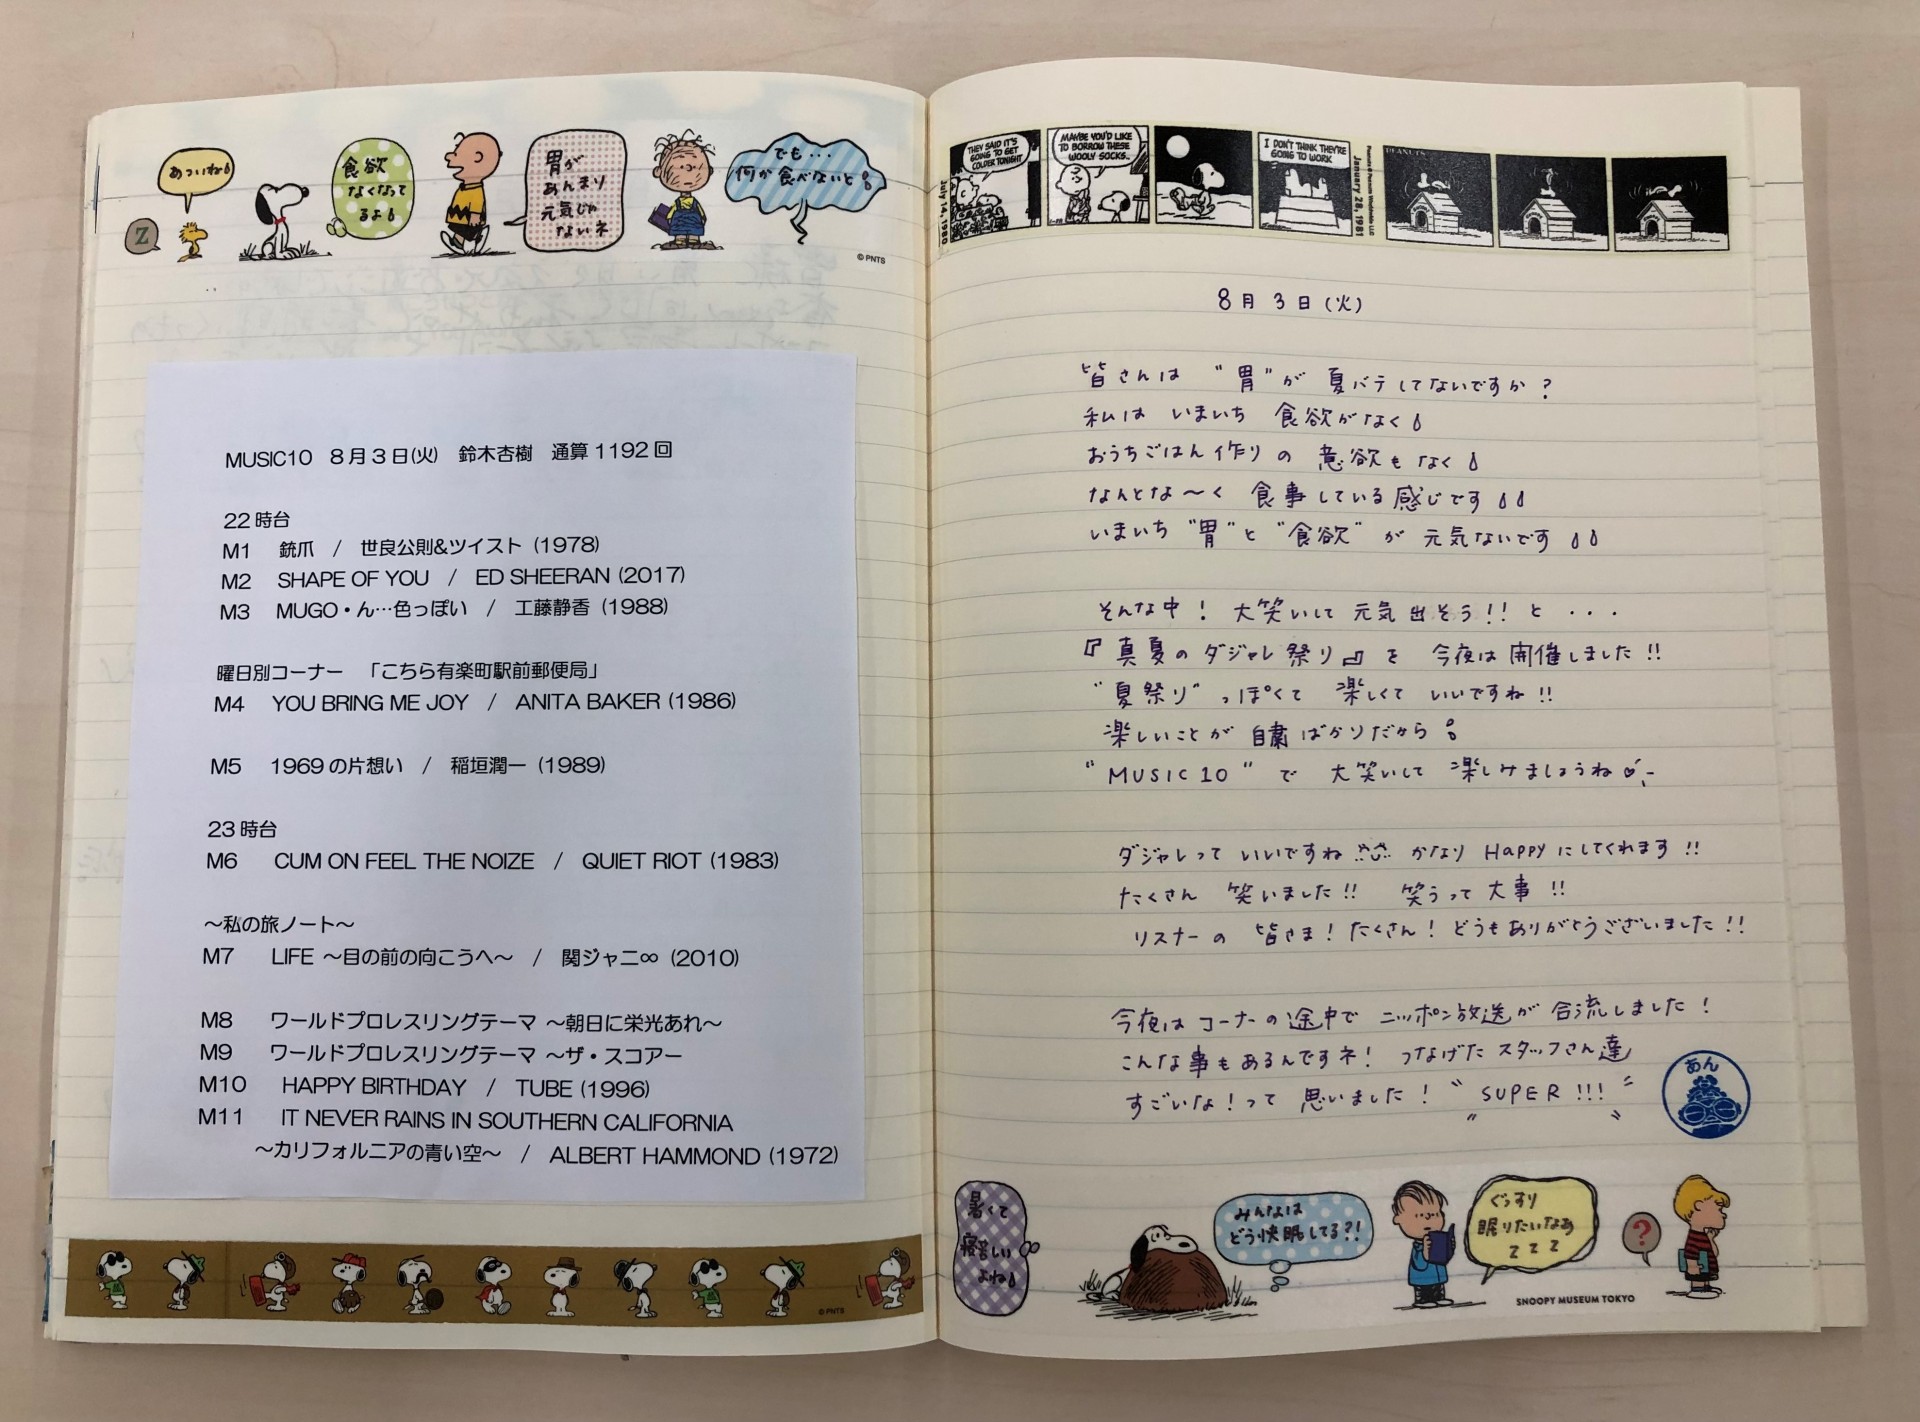 あついね
Z
食欲
なくなって
るよ
胃が
あんまり
元気じゃ
ないネ
でも...
何か食べないと
© PNTS
MUSIC10 8月3日(火) 鈴木杏樹 通算1192回
22時台
M1 銃爪 / 世良公則&ツイスト (1978)
M2 SHAPE OF YOU / ED SHEERAN (2017)
M3 MUGO・ん…色っぽい / 工藤静香 (1988)
曜日別コーナー 「こちら有楽町駅前郵便局」
M4 YOU BRING ME JOY / ANITA BAKER (1986)
M5 1969の片想い / 稲垣潤一 (1989)
23時台
M6 CUM ON FEEL THE NOIZE / QUIET RIOT (1983)
～私の旅ノート～
M7 LIFE ～目の前の向こうへ～ / 関ジャニ∞ (2010)
M8 ワールドプロレスリングテーマ ～朝日に栄光あれ～
M9 ワールドプロレスリングテーマ ～ザ・スコアー
M10 HAPPY BIRTHDAY / TUBE (1996)
M11 IT NEVER RAINS IN SOUTHERN CALIFORNIA
～カリフォルニアの青い空～ / ALBERT HAMMOND (1972)
© PNTS
July 14, 1980
THEY SAID IT'S
GOING TO GET
COLDER TONIGHT
MAYBE YOU'D LIKE
TO BORROW THESE
WOOLY SOCKS..
I DON'T THINK THEY'RE
GOING TO WORK
January 28, 1981
PEANUTS
8月3日(火)
皆さんは "胃"が 夏バテしてないですか?
私は いまいち 食欲がなく
おうちごはん作りの 意欲もなく
なんとな〜く 食事している感じです
いまいち "胃"と"食欲"が 元気ないです
そんな中! 大笑いして 元気出そう!! と・・・
『真夏のダジャレ祭り』を 今夜は開催しました!!
"夏祭り"っぽくて 楽しくて いいですね!!
楽しいことが 自粛ばかりだから
"MUSIC10"で 大笑いして 楽しみましょうね
ダジャレって いいですね かなり Happyにしてくれます!!
たくさん 笑いました!! 笑うって大事!!
リスナーの 皆さま! たくさん! どうもありがとうございました!!
今夜は コーナーの途中で ニッポン放送が 合流しました!
こんな事もあるんですネ! つなげた スタッフさん達
すごいな!って 思いました! "SUPER!!!"
あん
暑くて
寝苦しい
よね
みんなは
どう快眠してる?!
ぐっすり
眠りたいなあ
ZZZ
?
SNOOPY MUSEUM TOKYO